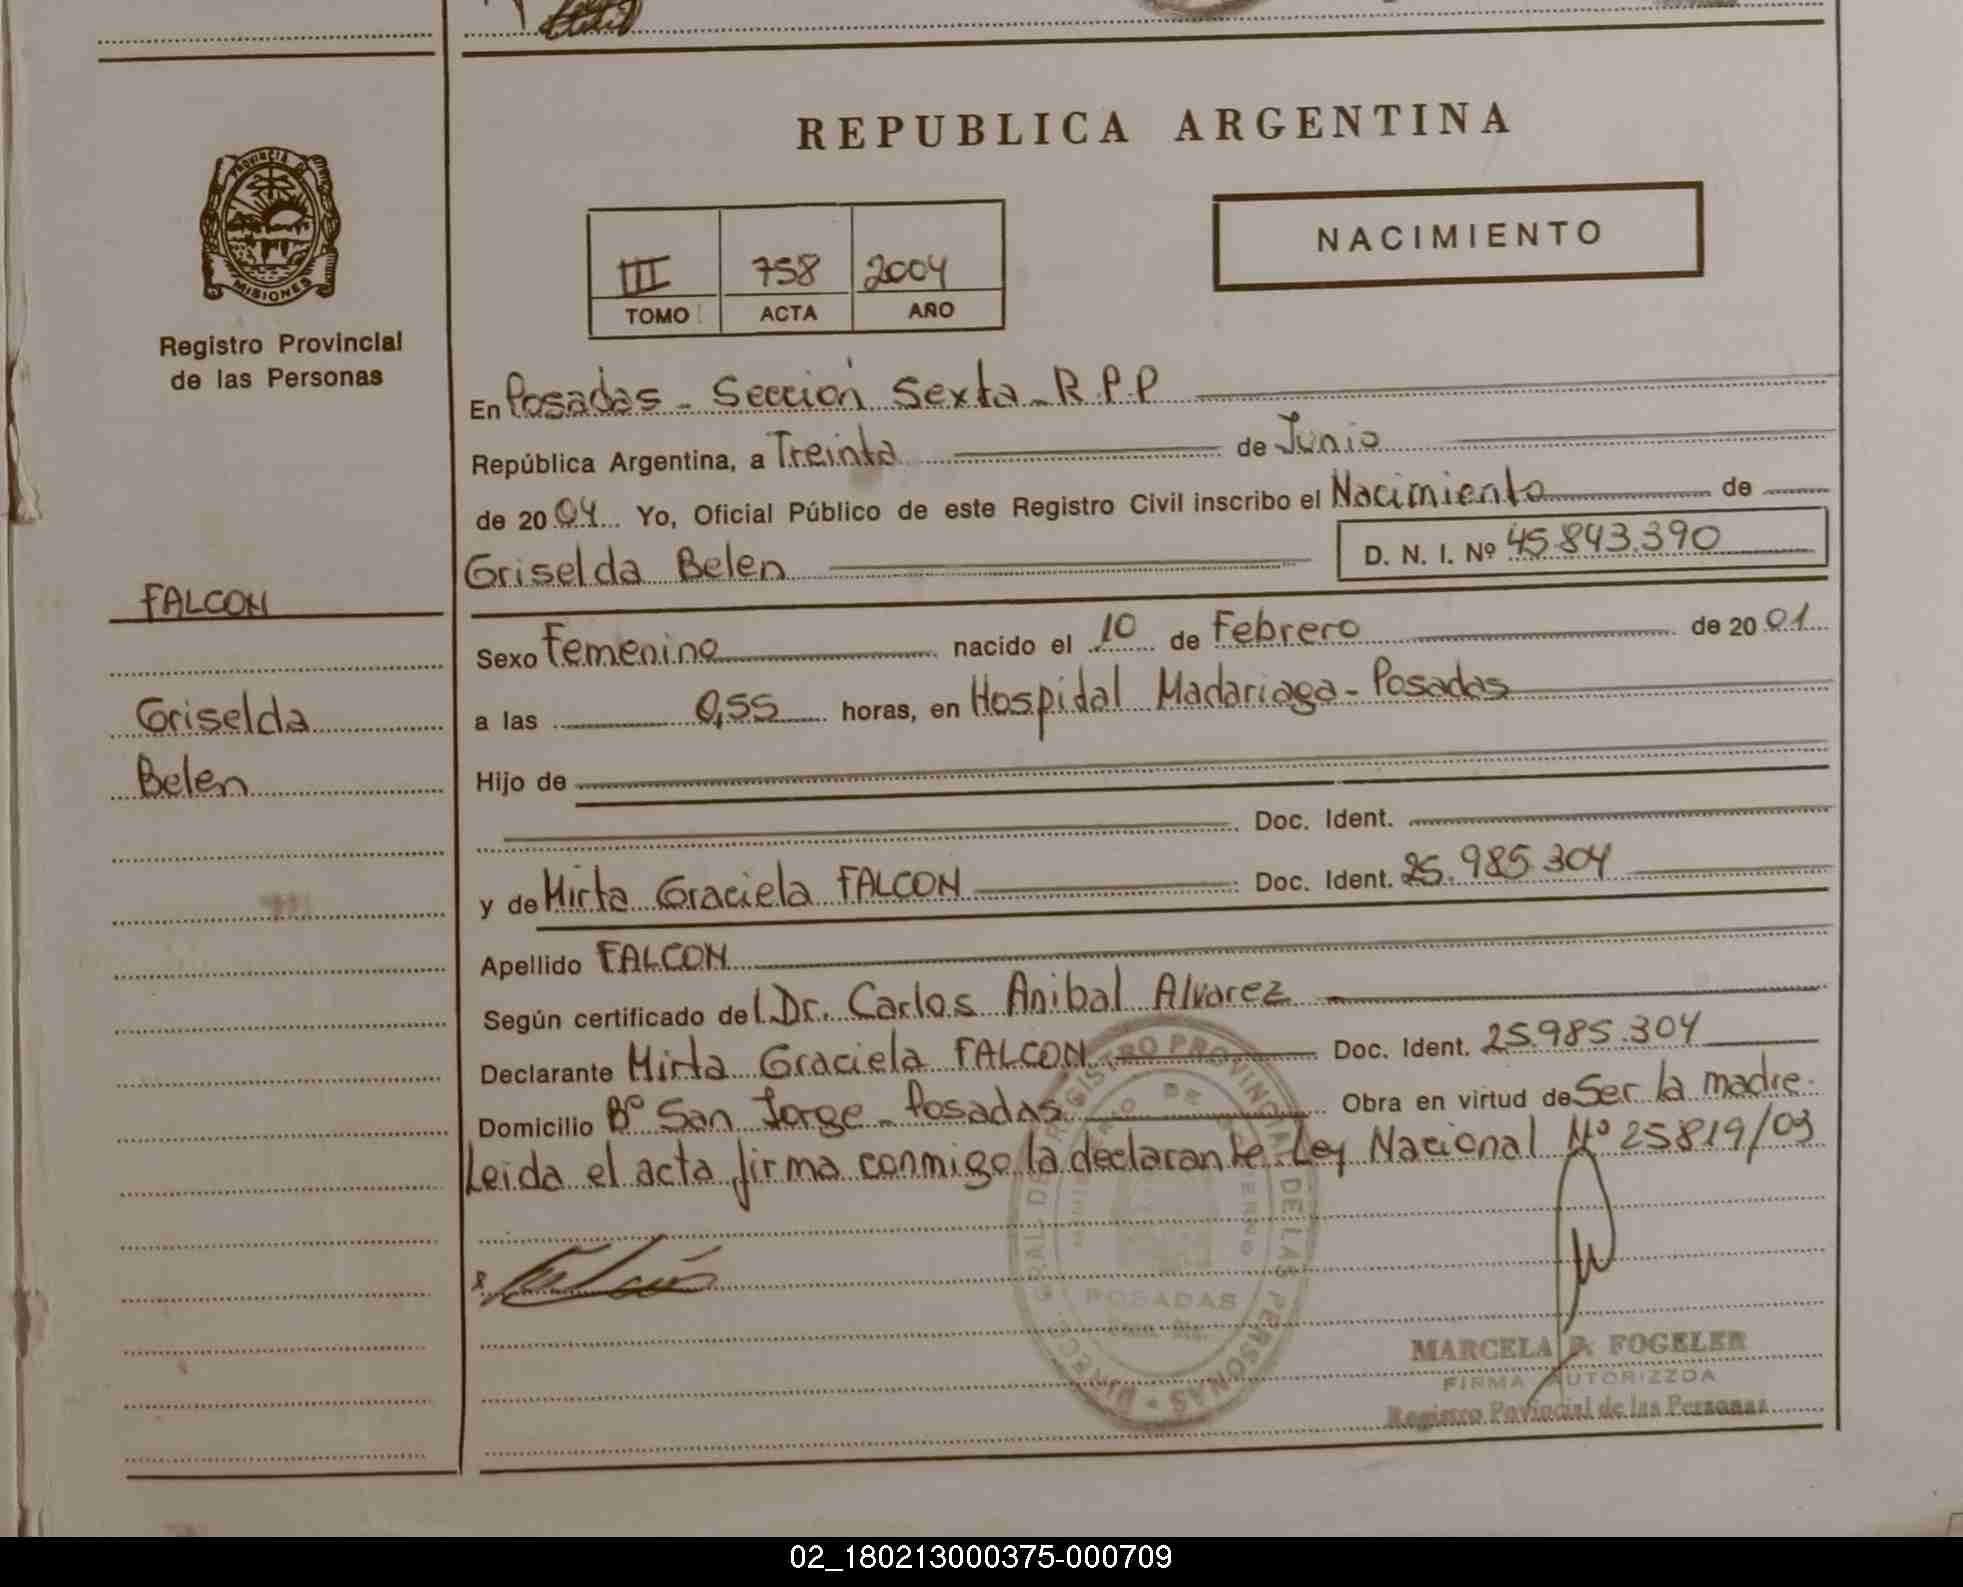 REPUBLICA ARGENTINA
PROVINCIA D
MISIONES
Registro Provincial
de las Personas
NACIMIENTO
III 758 2004
TOMO ACTA AÑO
En Posadas - Sección Sexta - R.P.P
República Argentina, a Treinta de Junio
de 2004 Yo, Oficial Público de este Registro Civil inscribo el Nacimiento de
Griselda Belen D. N. I. Nº 45.843.390
FALCON
Griselda
Belen
Sexo Femenino nacido el 10 de Febrero de 2001
a las 0,55 horas, en Hospital Madariaga - Posadas
Hijo de
Doc. Ident.
y de Mirta Graciela FALCON Doc. Ident. 25.985.304
Apellido FALCON
Según certificado del Dr. Carlos Anibal Alvarez
Declarante Mirta Graciela FALCON Doc. Ident. 25.985.304
Domicilio Bº San Jorge - Posadas Obra en virtud de Ser la madre.
Leida el acta firma conmigo la declarante. Ley Nacional Nº 25819/03
DIREC. GRAL. DE REGISTRO PROVINCIAL DE LAS PERSONAS
MINISTERIO DE GOBIERNO
POSADAS
MARCELA P. FOGELER
FIRMA AUTORIZZDA
Registro Povincial de las Personas
02_180213000375-000709